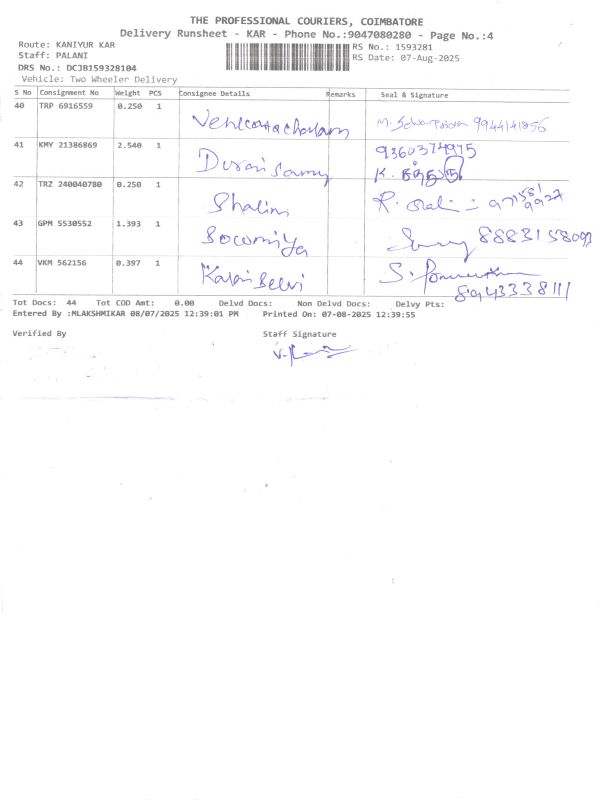 THE PROFESSIONAL COURIERS, COIMBATORE
Delivery Runsheet - KAR - Phone No.:9047080280 - Page No.:4
Route: KANIYUR KAR RS No.: 1593281
Staff: PALANI RS Date: 07-Aug-2025
DRS No.: DCJB159328104
Vehicle: Two Wheeler Delivery
S No Consignment No Weight PCS Consignee Details Remarks Seal & Signature
40 TRP 6916559 0.250 1 9944141856
41 KMY 21386869 2.540 1 Duraisamy 9360374975
42 TRZ 240040780 0.250 1 Shalini
43 GPM 5530552 1.393 1 Sowmiya 8883158093
44 VKM 562156 0.397 1 Kalaiselvi 8943338111
Tot Docs: 44 Tot COD Amt: 0.00 Delvd Docs: Non Delvd Docs: Delvy Pts:
Entered By :MLAKSHMIKAR 08/07/2025 12:39:01 PM Printed On: 07-08-2025 12:39:55
Verified By Staff Signature